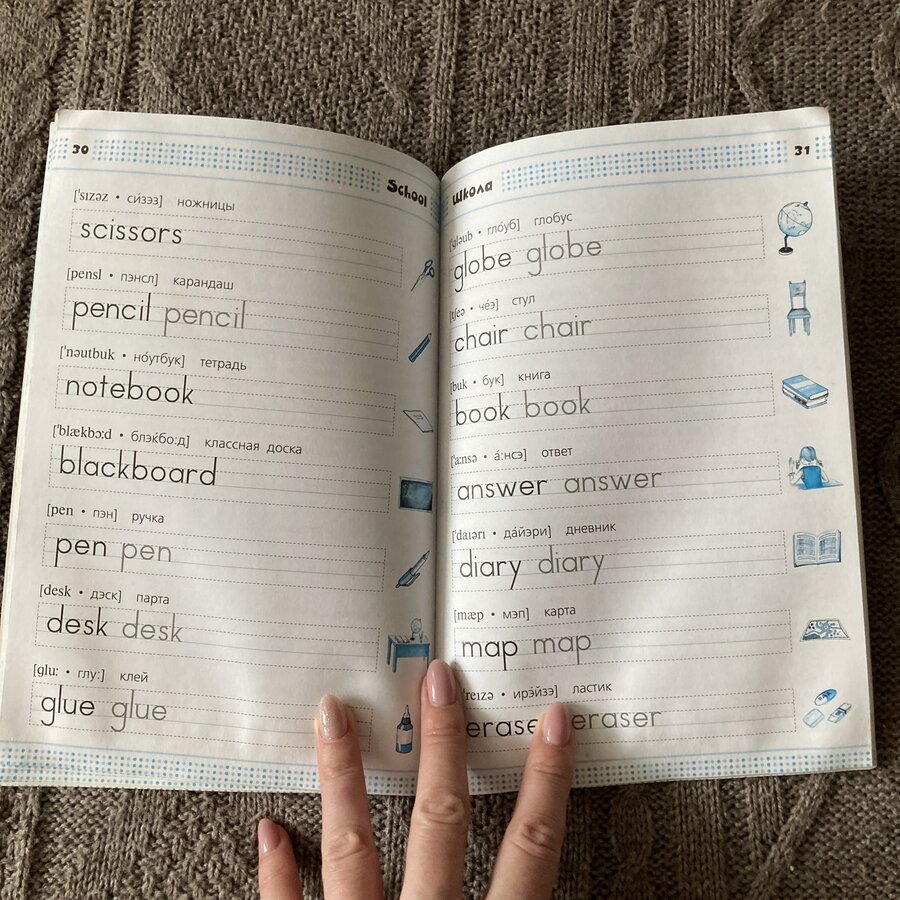 30
School
['sɪzəz • си́зэз] ножницы
scissors
[pensl • пэнсл] карандаш
pencil pencil
['nəutbuk • но́утбук] тетрадь
notebook
['blækbɔ:d • блэ́кбо:д] классная доска
blackboard
[pen • пэн] ручка
pen pen
[desk • дэск] парта
desk desk
[glu: • глу:] клей
glue glue
Школа
31
[gləub • гло́уб] глобус
globe globe
[tʃeə • че́э] стул
chair chair
[buk • бук] книга
book book
['a:nsə • а́:нсэ] ответ
answer answer
['daɪərɪ • да́йэри] дневник
diary diary
[mæp • мэп] карта
map map
'reɪzə • ирэ́йзэ] ластик
erase eraser